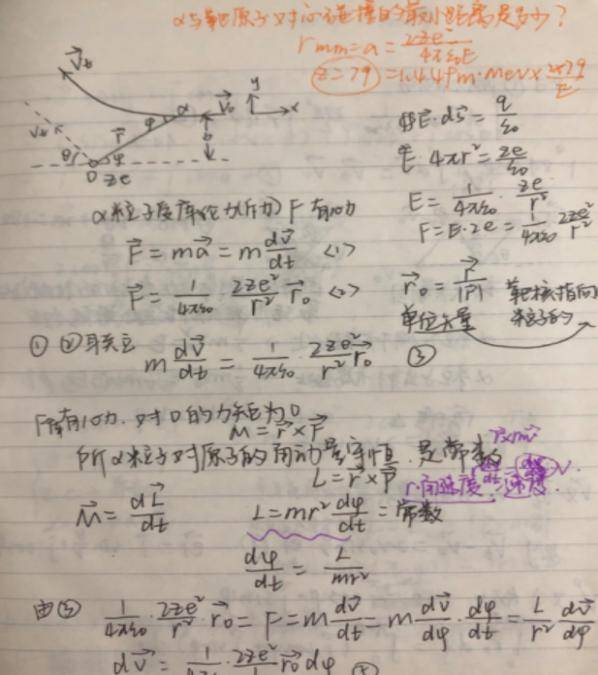 α与靶原子对心碰撞的最小距离是多少？
r min = a = 2ze²/4πε₀E
z=79 = 1.44fm·Mev × 2×79/E
V⃗t
α V⃗₀ y x
r⃗ φ b
θ φ
O ze
∯E⃗·dS⃗ = q/ε₀
E·4πr² = ze/ε₀
E = 1/4πε₀ · ze/r²
F = E·2e = 1/4πε₀ 2ze²/r²
α粒子受库伦力(斥力) F 有心力
F⃗ = ma⃗ = m dv⃗/dt <1>
F⃗ = 1/4πε₀ · 2ze²/r² r⃗₀ <2>
r⃗₀ = r⃗/|r| 靶核指向
单位矢量 粒子的
① ②联立 m dv⃗/dt = 1/4πε₀ · 2ze²/r² r⃗₀ ③
F有心力. 对O的力矩为0
M = r⃗×F⃗
所α粒子对原子的角动量守恒. 是常数
L = r⃗×P⃗
r·角速度=速度
M⃗ = dL⃗/dt L = mr² dφ/dt = 常数
dφ/dt = L/mr²
由③ 1/4πε₀ · 2ze²/r² · r⃗₀ = F = m dv⃗/dt = m dv⃗/dφ · dφ/dt = L/r² dv⃗/dφ
dv⃗ = 1/4πε₀ · 2ze² r⃗₀ dφ